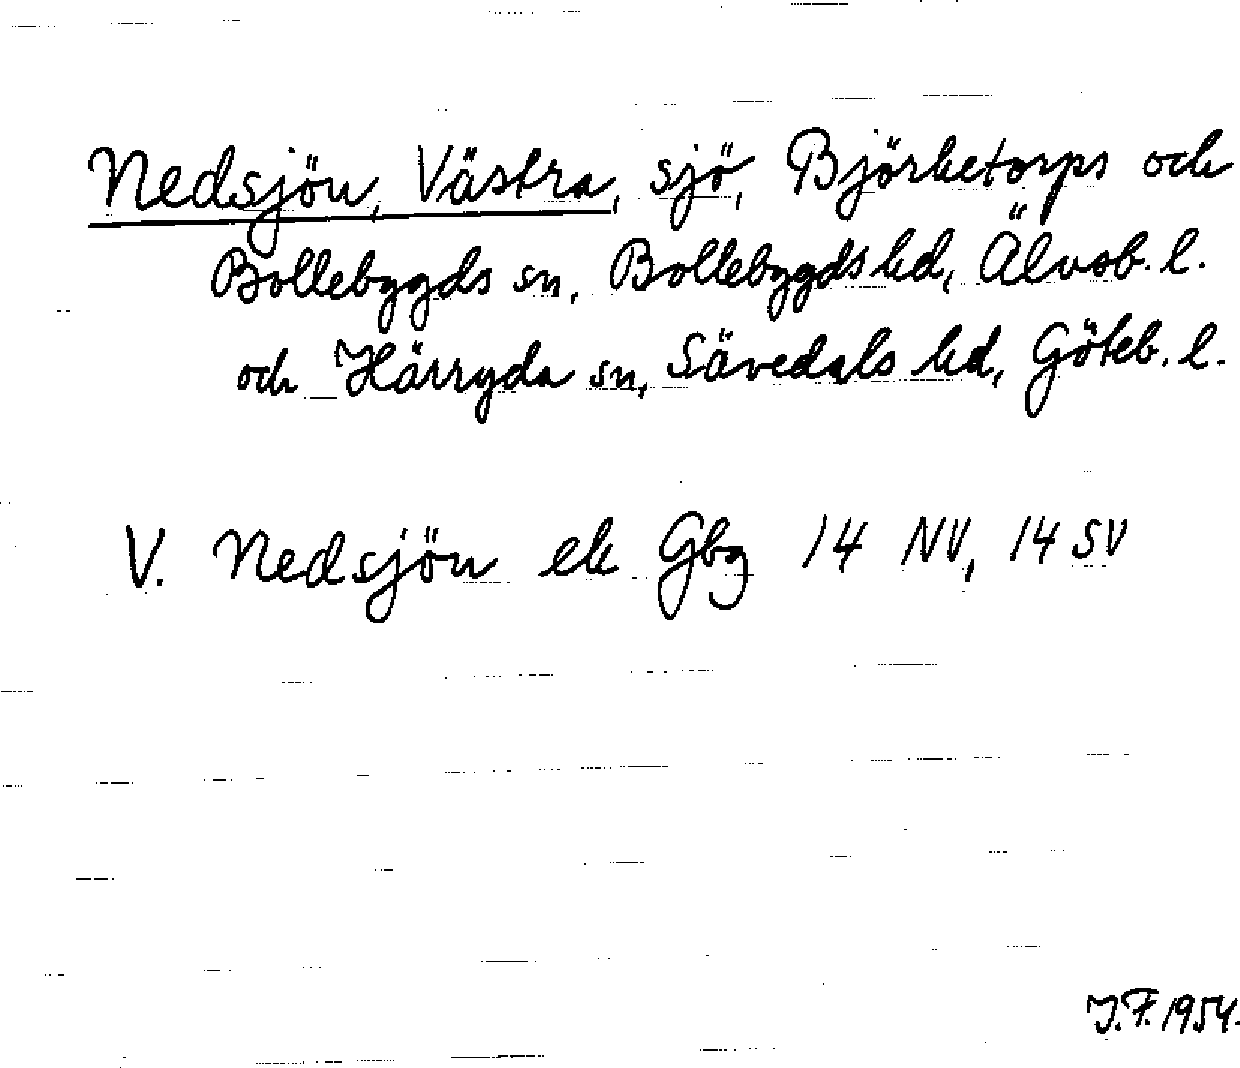 Nedsjön, Västra, sjö, Björketorps och
Bollebygds sn, Bollebygds hd, Älvsb. l.
och Härryda sn, Sävedals hd, Göteb. l.
V. Nedsjön ek Gbg 14 NV, 14 SV
J.F. 1954.